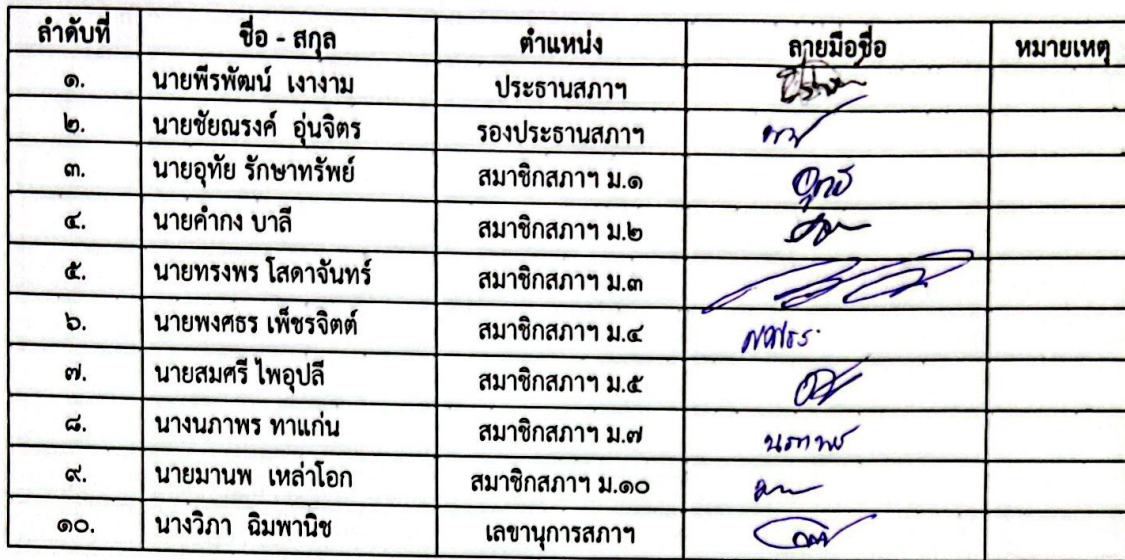 ลำดับที่ ชื่อ - สกุล ตำแหน่ง ลายมือชื่อ หมายเหตุ
๑. นายพีรพัฒน์ เงางาม ประธานสภาฯ
๒. นายชัยณรงค์ อุ่นจิตร รองประธานสภาฯ
๓. นายอุทัย รักษาทรัพย์ สมาชิกสภาฯ ม.๑ อุทัย
๔. นายคำกง บาลี สมาชิกสภาฯ ม.๒
๕. นายทรงพร โสดาจันทร์ สมาชิกสภาฯ ม.๓
๖. นายพงศธร เพ็ชรจิตต์ สมาชิกสภาฯ ม.๔
๗. นายสมศรี ไพอุปลี สมาชิกสภาฯ ม.๕
๘. นางนภาพร ทาแก่น สมาชิกสภาฯ ม.๗ นภาพร
๙. นายมานพ เหล่าโอก สมาชิกสภาฯ ม.๑๐
๑๐. นางวิภา ฉิมพานิช เลขานุการสภาฯ